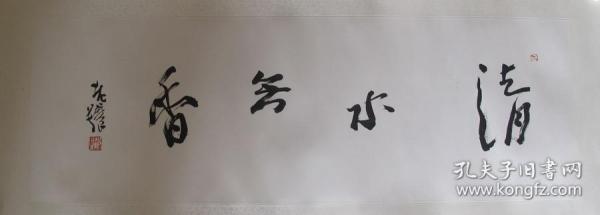 清水无香
孔夫子旧书网
www.kongfz.com